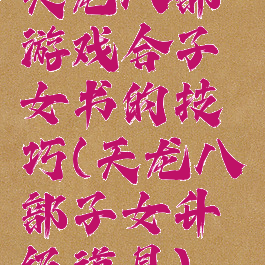 天龙八部
游戏合子
女书的技
巧(天龙八
部子女升
级道具)